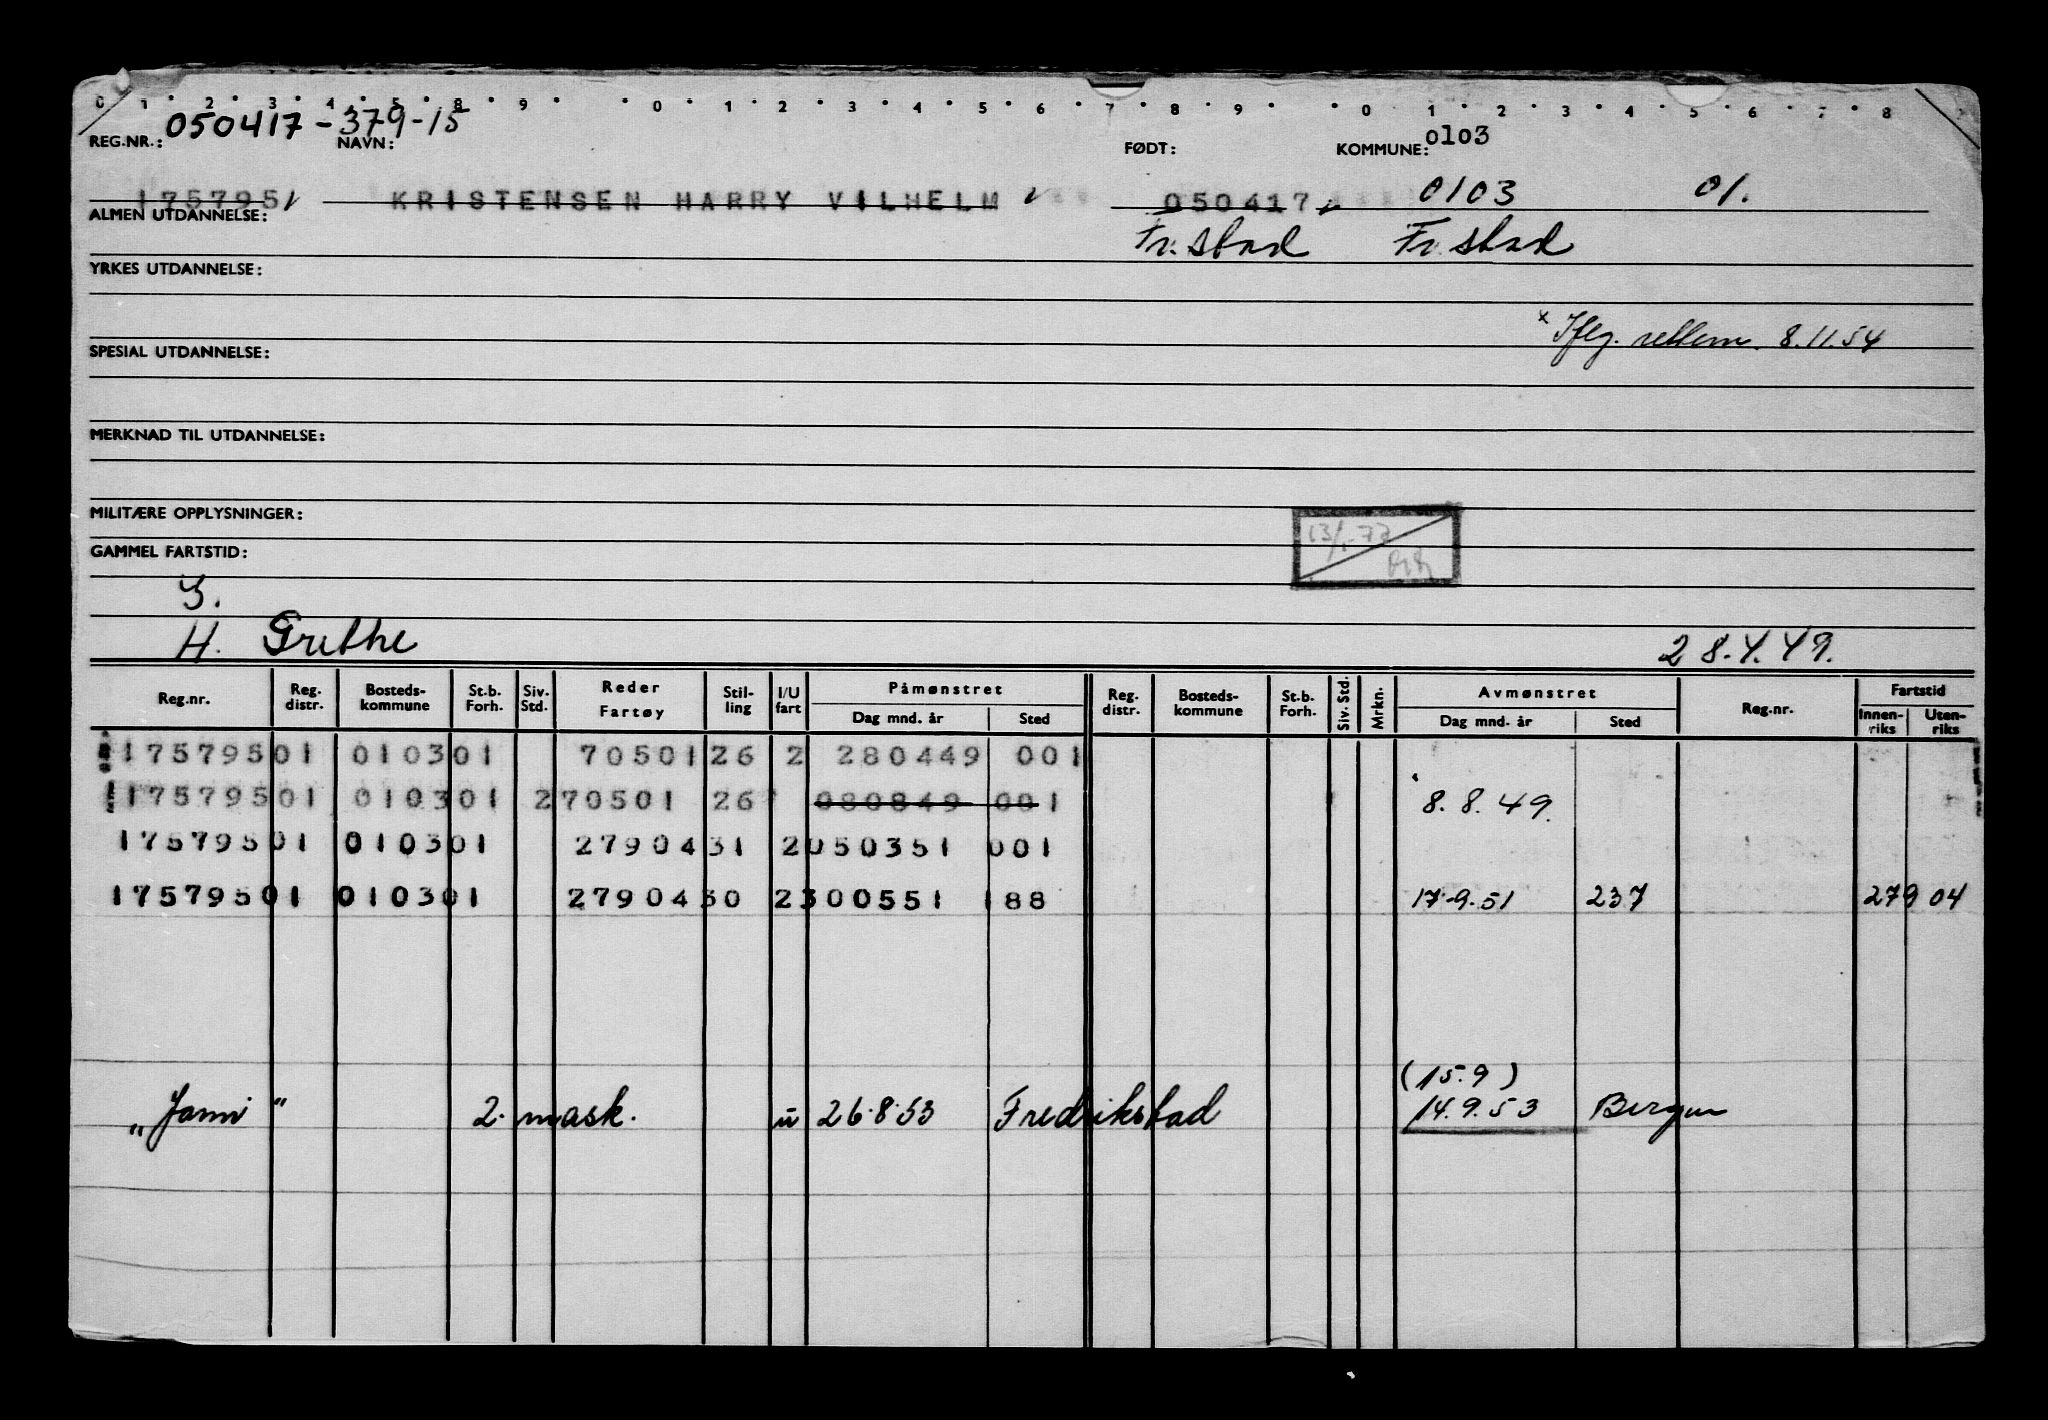 0 1 2 3 4 5 8 9 0 1 2 3 4 5 6 7 8 9 0 1 2 3 4 5 6 7 8
REG.NR.: 050417-379-15 NAVN: FØDT: KOMMUNE: 0103
175795 KRISTENSEN HARRY VILHELM 050417 0103 01.
ALMEN UTDANNELSE: Fr.stad Fr.stad
YRKES UTDANNELSE:
8.11.54
SPESIAL UTDANNELSE:
MERKNAD TIL UTDANNELSE:
MILITÆRE OPPLYSNINGER:
GAMMEL FARTSTID:
S.
H. Grethe 28.4.49.
Reg.nr. Reg. distr. Bosteds-kommune St.b. Forh. Siv. Std. Reder Fartøy Stil-ling I/U fart Påmønstret Dag mnd. år Sted Reg. distr. Bosteds-kommune St.b. Forh. Siv. Std. Mrkn. Avmønstret Dag mnd. år Sted Reg.nr. Fartstid Innen-riks Uten-riks
17579501 010301 70501 26 2 280449 001
17579501 010301 270501 26 080849 001 8.8.49.
17579501 010301 2790431 2050351 001
17579501 010301 2790430 2300551 188 17.9.51 237 279 04
(15.9)
"Janni" 2. mask. u 26.8.53 Fredrikstad 14.9.53 Bergen